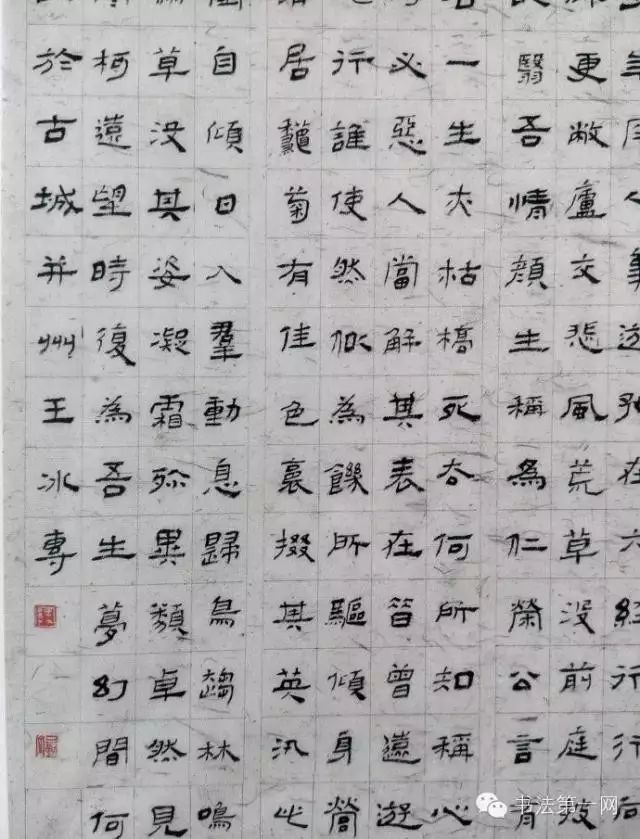 人事遊好在六經行行向
更敝廬交悲風荒草沒前庭披
翳吾情顏生稱為仁榮公言有
一生亦枯槁死去何所知稱心
必惡人當解其表在昔曾遠遊
行誰使然似為饑所驅傾身營
居龝菊有佳色裛掇其英汎此
自傾日入羣動息歸鳥趨林鳴
草沒其姿凝霜殄異類卓然見
柯遠望時復為吾生夢幻間何
於古城并州王冰
书法第一网